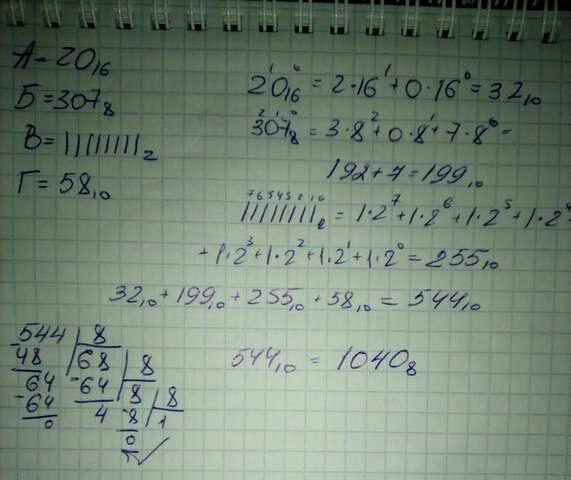 А = 20₁₆
Б = 307₈
В = 11111111₂
Г = 58₁₀
2¹0⁰₁₆ = 2·16¹ + 0·16⁰ = 32₁₀
3²0¹7⁰₈ = 3·8² + 0·8¹ + 7·8⁰ =
192 + 7 = 199₁₀
7 6 5 4 3 2 1 0
11111111₂ = 1·2⁷ + 1·2⁶ + 1·2⁵ + 1·2⁴
+ 1·2³ + 1·2² + 1·2¹ + 1·2⁰ = 255₁₀
32₁₀ + 199₁₀ + 255₁₀ + 58₁₀ = 544₁₀
-544 | 8
48 | 68 | 8
64 -64 | 8 | 8
-64 4 -8 | 1
0 0
544₁₀ = 1040₈